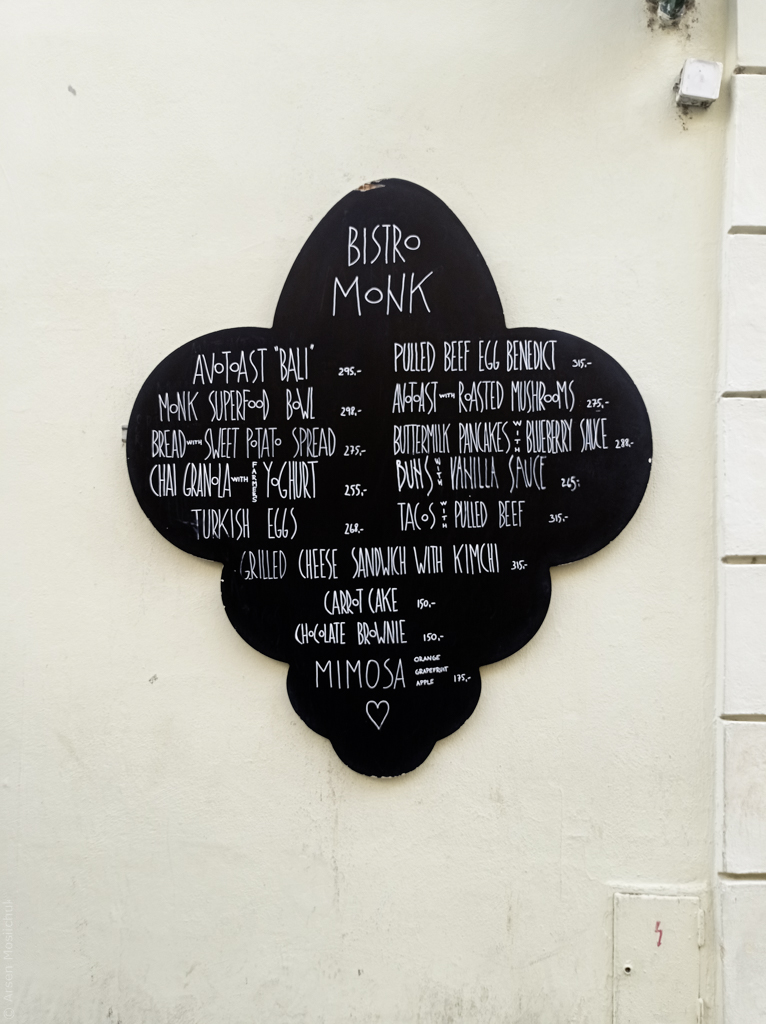 BISTRO
MONK
AVOTOAST "BALI" 295,-
MONK SUPERFOOD BOWL 298,-
BREAD WITH SWEET POTATO SPREAD 275,-
CHAI GRANOLA WITH FARMERS YOGHURT 255,-
TURKISH EGGS 268,-
PULLED BEEF EGG BENEDICT 315,-
AVOTOAST WITH ROASTED MUSHROOMS 275,-
BUTTERMILK PANCAKES WITH BLUEBERRY SAUCE 288,-
BUNS WITH VANILLA SAUCE 265,-
TACOS WITH PULLED BEEF 315,-
GRILLED CHEESE SANDWICH WITH KIMCHI 315,-
CARROT CAKE 150,-
CHOCOLATE BROWNIE 150,-
MIMOSA ORANGE GRAPEFRUIT APPLE 175,-
© Arsen Mosiichuk